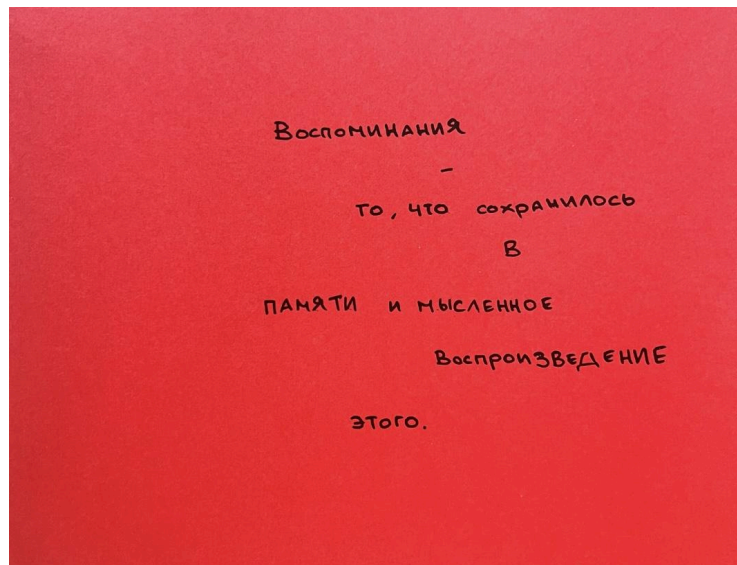 Воспоминания
-
то, что сохранилось
в
памяти и мысленное
воспроизведение
этого.